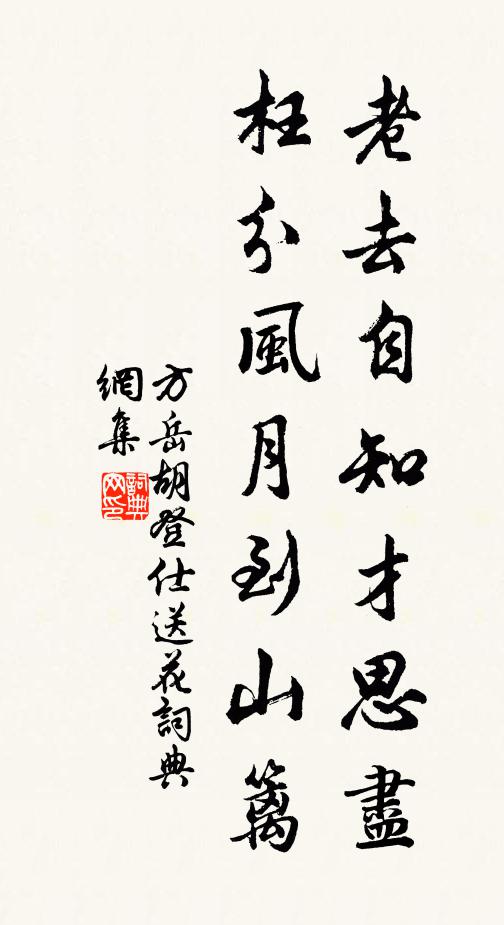 老去自知才思盡
枉分風月到山籬
方岳胡登仕送花詞典
網集
詞典
网印